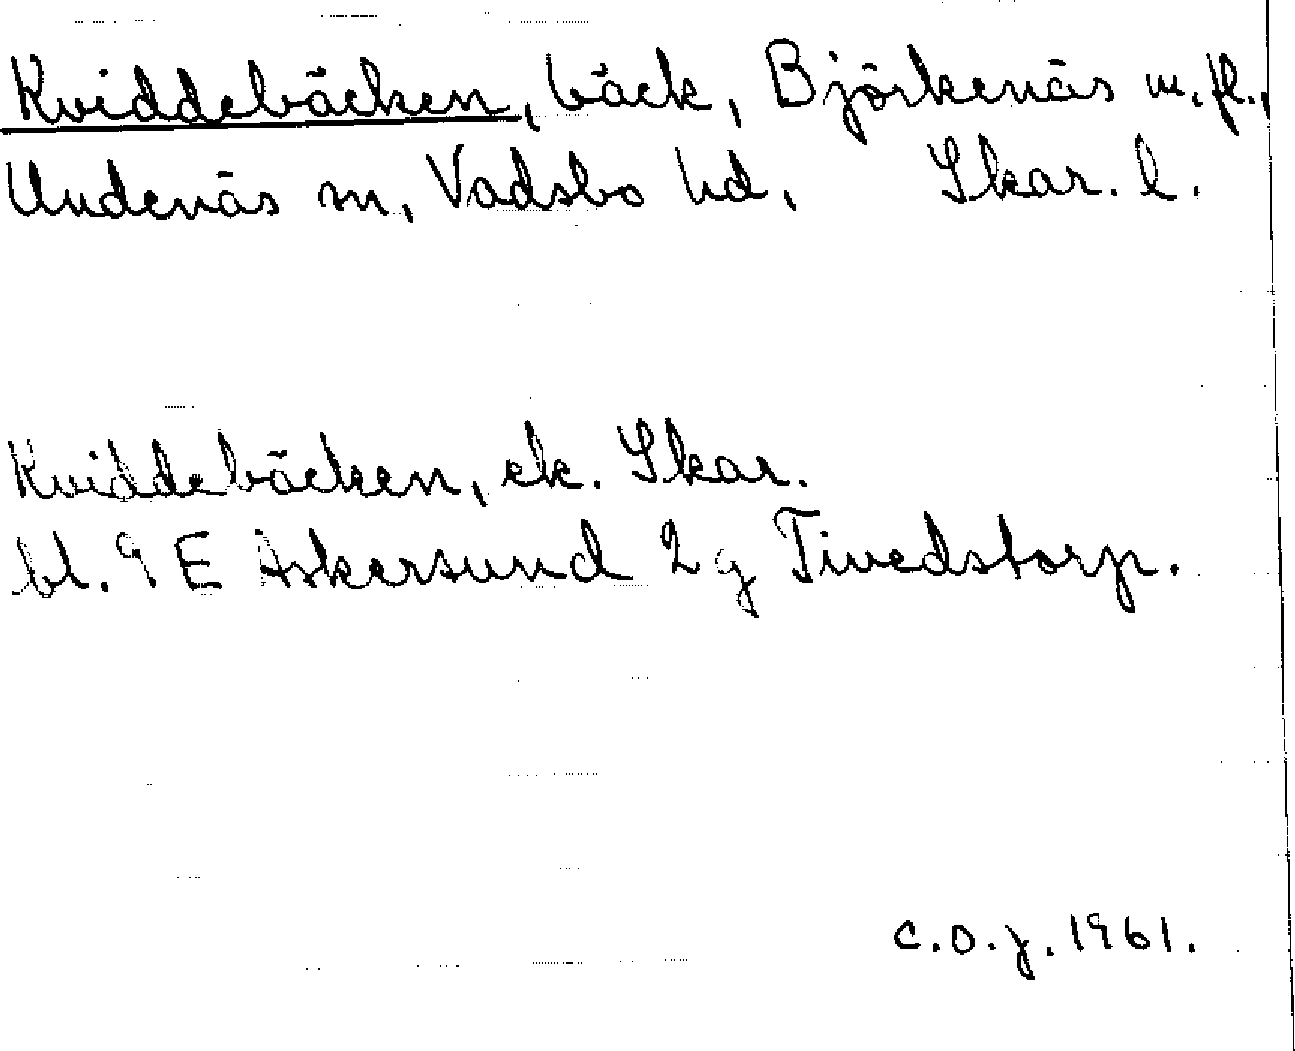 Kviddebäcken, bäck, Björkenäs m. fl.,
Undenäs sn, Vadsbo hd, Skar. l.
Kviddebäcken, ek. Skar.
bl. 9 E Askersund 2 g Tivedstorp.
C.O.J. 1961.